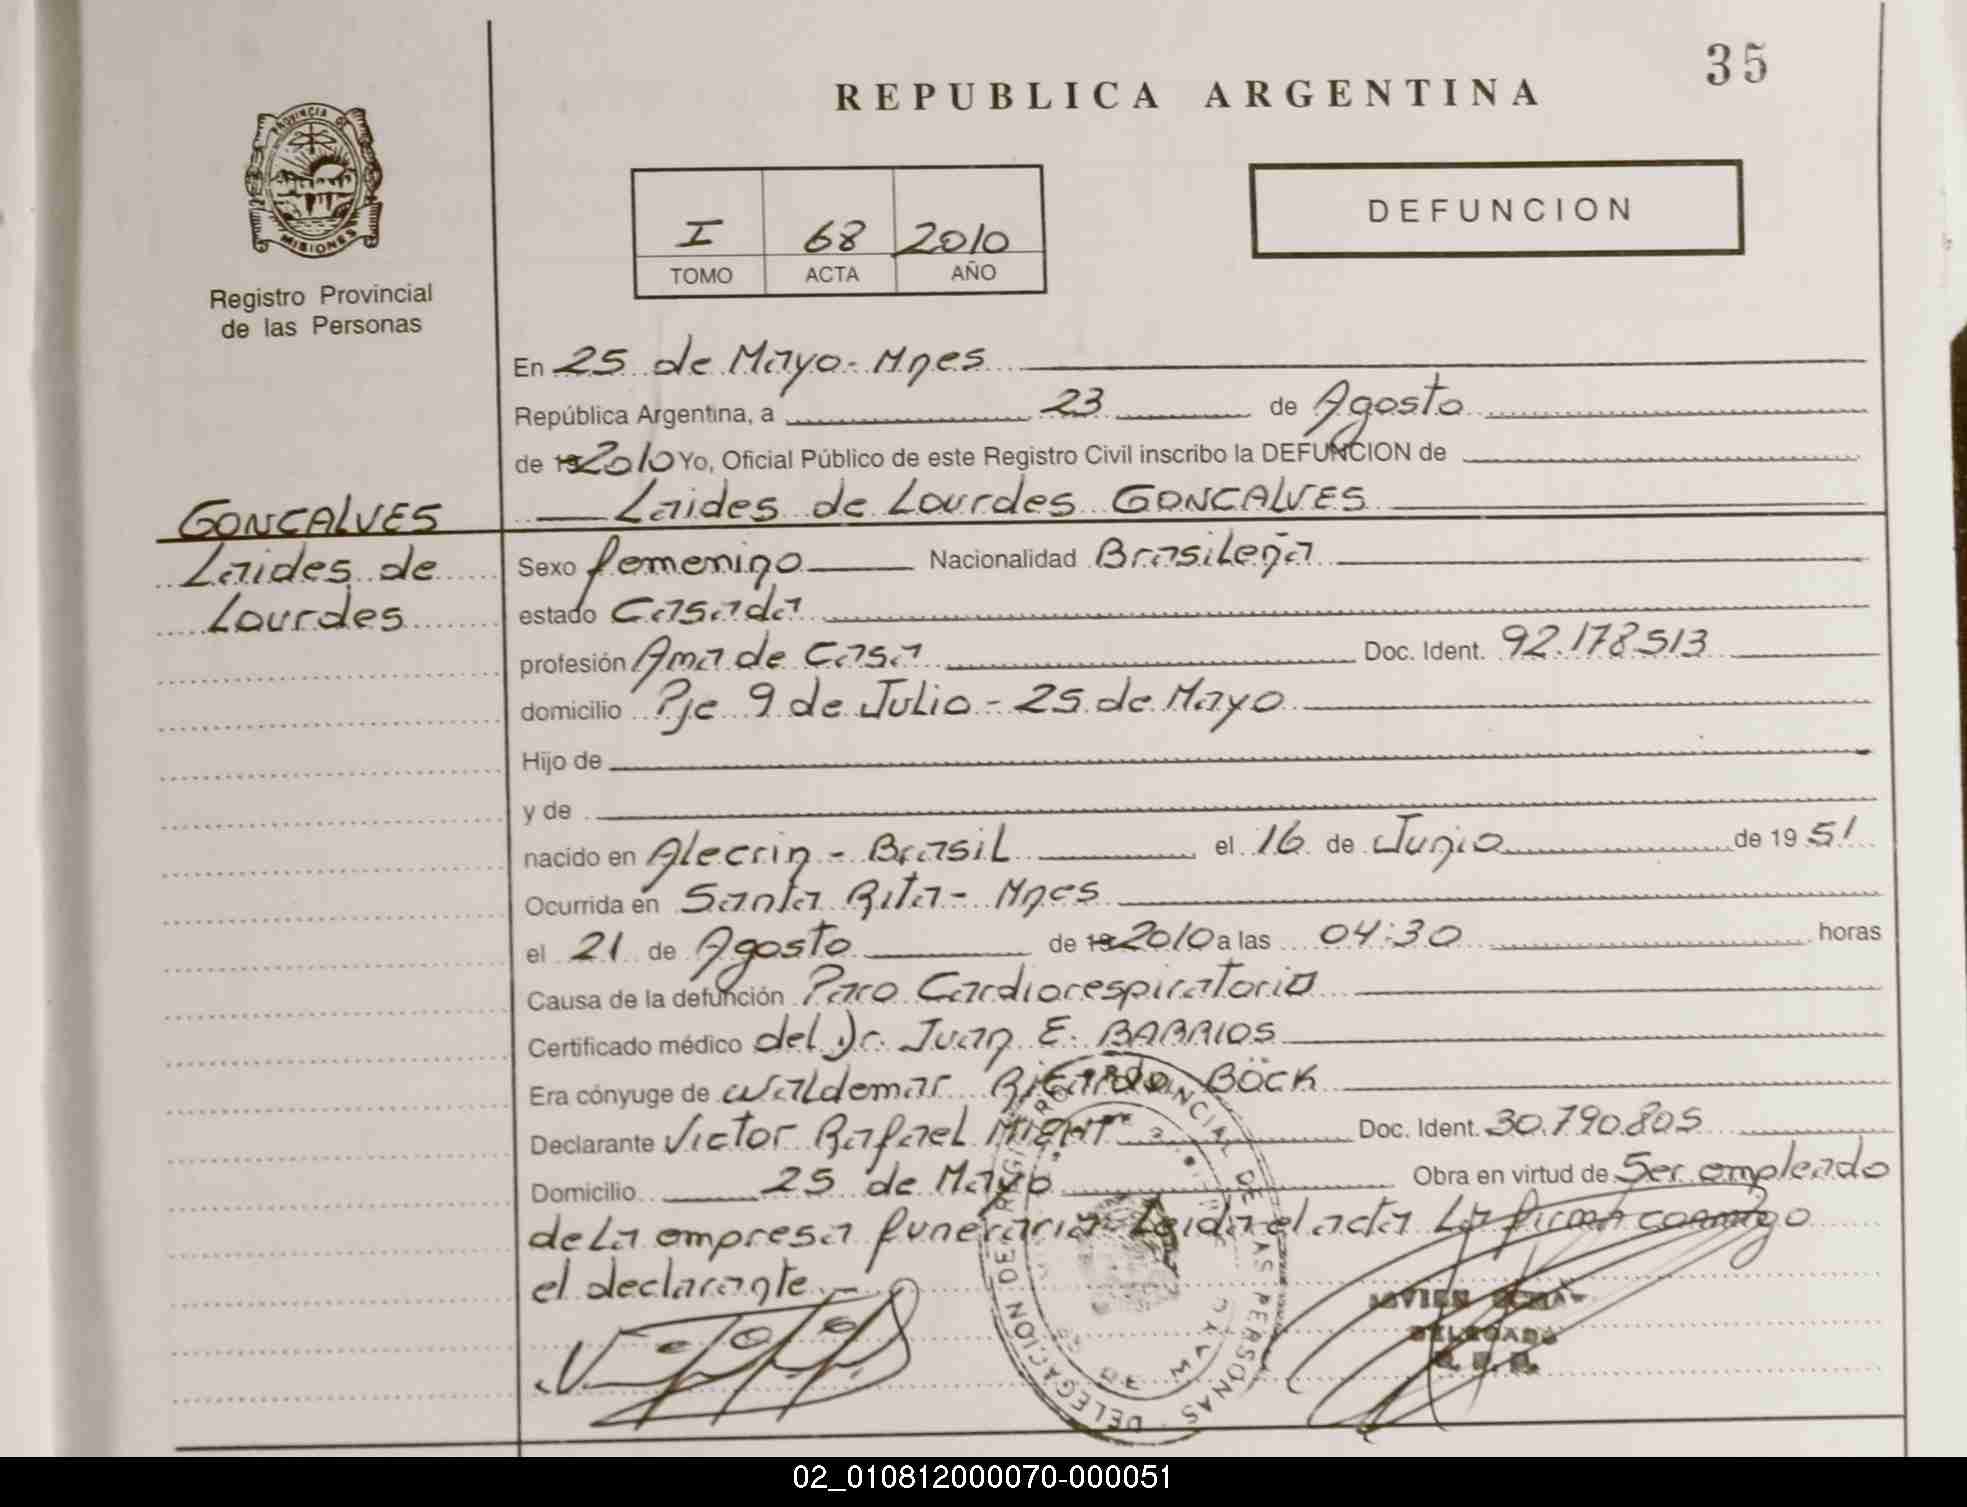 35
REPUBLICA ARGENTINA
PROVINCIA DE
MISIONES
Registro Provincial
de las Personas
I 68 2010
TOMO ACTA AÑO
DEFUNCION
En 25 de Mayo - Mnes
República Argentina, a 23 de Agosto
de 19 2010 Yo, Oficial Público de este Registro Civil inscribo la DEFUNCION de
Laides de Lourdes GONCALVES
GONCALVES
Laides de
Lourdes
Sexo femenino Nacionalidad Brasileña
estado Casada
profesión Ama de Casa Doc. Ident. 92.178.513
domicilio Pje 9 de Julio - 25 de Mayo
Hijo de
y de
nacido en Alecrin - Brasil el 16 de Junio de 1951
Ocurrida en Santa Rita - Mnes
el 21 de Agosto de 19 2010 a las 04:30 horas
Causa de la defunción Paro Cardiorespiratorio
Certificado médico del Dr. Juan E. BARRIOS
Era cónyuge de Waldemar Ricardo BÖCK
Declarante Victor Rafael Doc. Ident. 30.790.805
Domicilio 25 de Mayo Obra en virtud de Ser empleado
de La empresa funeraria Leida el acta La firma conmigo
el declarante.-
DELEGACION DE REGISTRO PROVINCIAL DE LAS PERSONAS
DELEGADO
02_010812000070-000051